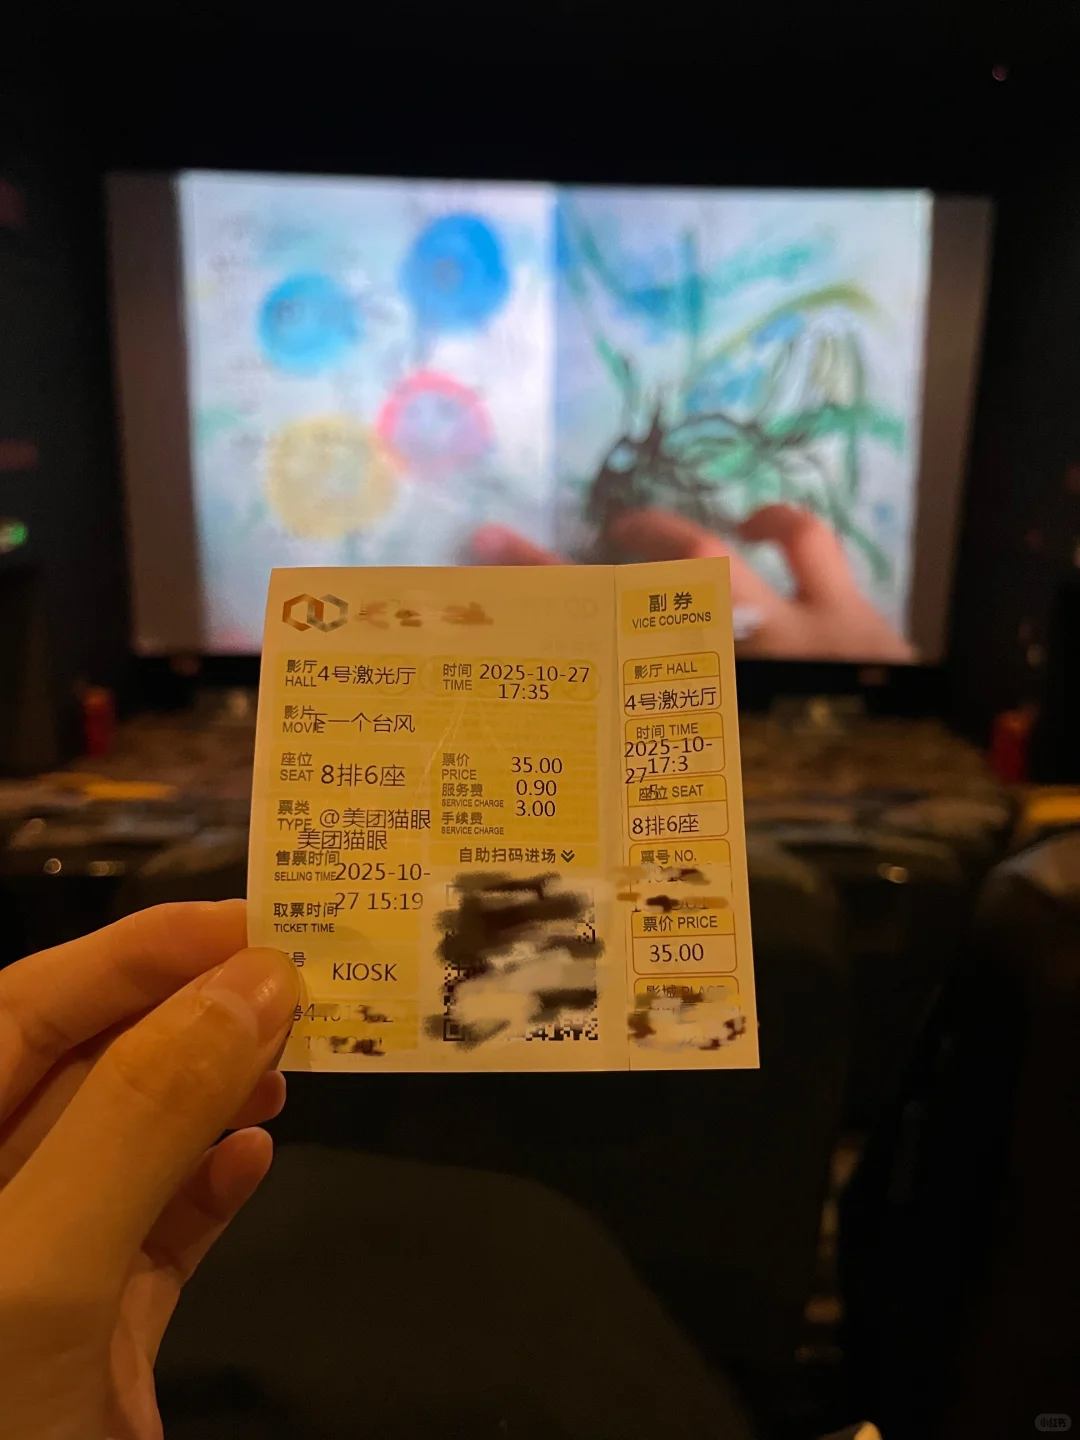 影厅
HALL
4号激光厅
时间
TIME
2025-10-27
17:35
影片
MOVIE
下一个台风
座位
SEAT
8排6座
票价
PRICE
35.00
服务费
SERVICE CHARGE
0.90
手续费
SERVICE CHARGE
3.00
票类
TYPE
@美团猫眼
美团猫眼
售票时间
SELLING TIME
2025-10-
27 15:19
取票时间
TICKET TIME
自助扫码进场
号
KIOSK
副券
VICE COUPONS
影厅 HALL
4号激光厅
时间 TIME
2025-10-
27
17:3
5
座位 SEAT
8排6座
票号 NO.
票价 PRICE
35.00
影城 PLACE
小红书